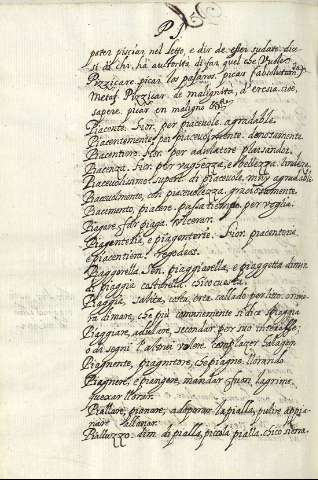 P J.
poter pisciar nel letto, e dir de esser sudato: di
si di chi, ha autorità di far quel che vuole
Pizzicare. picar los paxaros. picar
Metaf. Pizzicar di malignità, d'eresia, cioè,
sapere. picar en maligno
Piacento. Fior. per piacevole. agradable.
Piacentemente, per piacevolmente. donosamente.
Piacentiere. Fior. per adulatore. 
Piacenza. Fior. per vaghezza, e bellezza. lindeza.
Piacevolissimo. superl. di piacevole. muy agradable
Piacevolmente, con piacevolezza. graciosamente.
Piacimento, piacere. passatiempo. per voglia.
Piagare, far piaga. ulcerar.
Piagentaria, e piagenteria. Fior. piacenteria,
e piacentiera.
Piaggerella. e piaggiarella, e piaggetta dimin
di piaggia. costabile. chico cuesta.
Piaggia, salita, costa, erta. collado. per lito: o rive
ra di mare, che più comunemente si dice spiaggia
Piaggiare, adulare, secondar per suo interesse
o da segni l'altrui volere. complacer. halagar
Piagnente, piagnitore, che piagne. llorando
Piagnere, e piangere, mandar fuori lagrime.
quexar. llorar.
Piallare, pianare, adoperar la pialla, pulire, appia
nare. allanar.
Pialluzzo. dim. di pialla, piccola pialla. chico sierra.